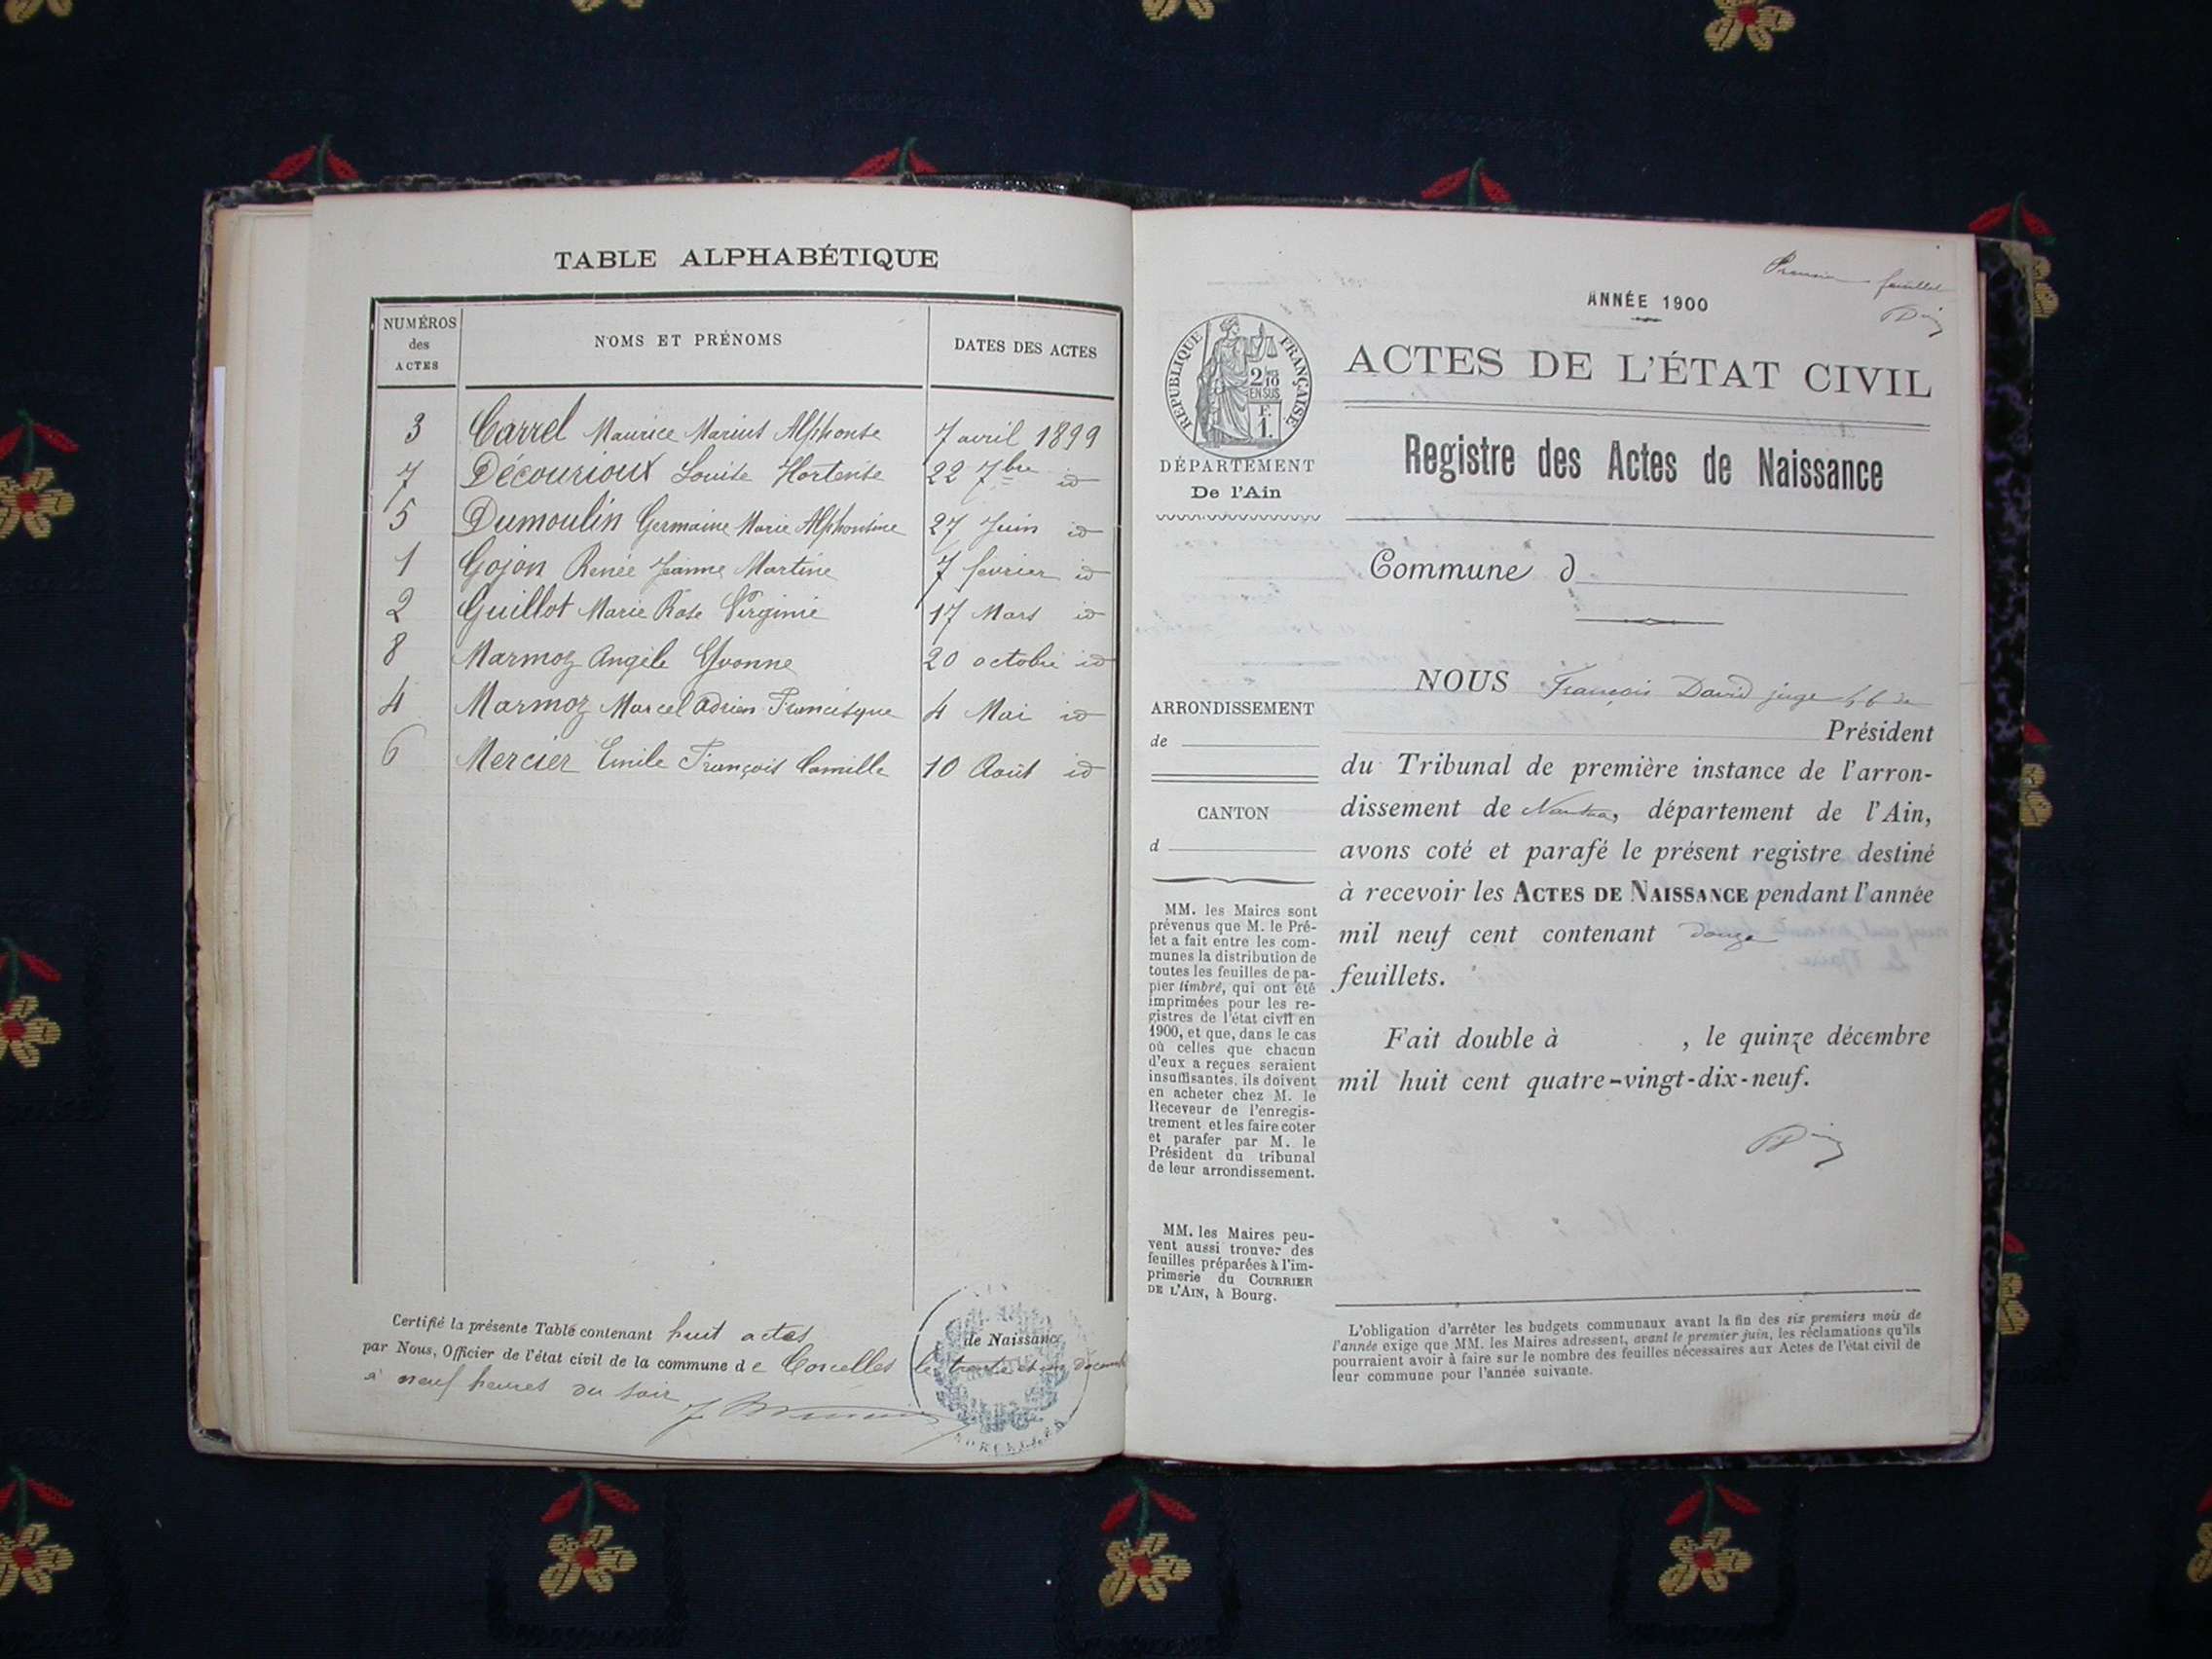 TABLE ALPHABÉTIQUE
NUMÉROS
des
ACTES
NOMS ET PRÉNOMS
DATES DES ACTES
3 Carrel Maurice Marius Alphonse 7 avril 1899
7 Décourioux Louise Hortense 22 7bre id
5 Dumoulin Germaine Marie Alphonsine 27 Juin id
1 Gojon Renée Jeanne Martine 7 fevrier id
2 Guillot Marie Rose Virginie 17 Mars id
8 Marmoz Angèle Yvonne 20 octobre id
4 Marmoz Marcel Adrien Francisque 4 Mai id
6 Mercier Emile François Camille 10 Août id
Certifié la présente Table contenant huit actes de Naissance
par Nous, Officier de l'état civil de la commune de Corcelles le trente et un décemb
à neuf heures du soir
Premier feuillet
ANNÉE 1900
RÉPUBLIQUE FRANÇAISE
2/10
EN SUS
F.
1.
DÉPARTEMENT
De l'Ain
ACTES DE L'ÉTAT CIVIL
Registre des Actes de Naissance
Commune d
ARRONDISSEMENT
de
CANTON
d
MM. les Maires sont
prévenus que M. le Pré-
fet a fait entre les com-
munes la distribution de
toutes les feuilles de pa-
pier timbré, qui ont été
imprimées pour les re-
gistres de l'état civil en
1900, et que, dans le cas
où celles que chacun
d'eux a reçues seraient
insuffisantes, ils doivent
en acheter chez M. le
Receveur de l'enregis-
trement et les faire coter
et parafer par M. le
Président du tribunal
de leur arrondissement.
MM. les Maires peu-
vent aussi trouver des
feuilles préparées à l'im-
primerie du COURRIER
DE L'AIN, à Bourg.
NOUS François David juge
Président
du Tribunal de première instance de l'arron-
dissement de Nantua, département de l'Ain,
avons coté et parafé le présent registre destiné
à recevoir les ACTES DE NAISSANCE pendant l'année
mil neuf cent contenant douze
feuillets.
Fait double à , le quinze décembre
mil huit cent quatre-vingt-dix-neuf.
L'obligation d'arrêter les budgets communaux avant la fin des six premiers mois de
l'année exige que MM. les Maires adressent, avant le premier juin, les réclamations qu'ils
pourraient avoir à faire sur le nombre des feuilles nécessaires aux Actes de l'état civil de
leur commune pour l'année suivante.